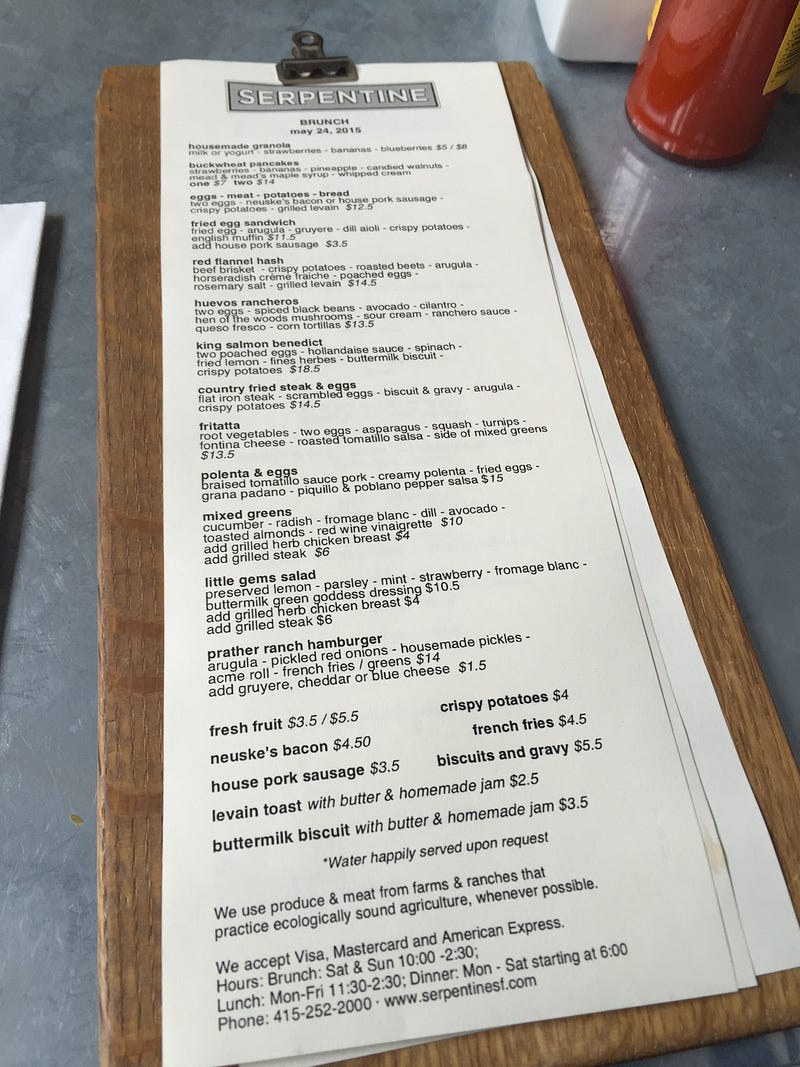 SERPENTINE
BRUNCH
may 24, 2015
housemade granola
milk or yogurt - strawberries - bananas - blueberries $5 / $8
buckwheat pancakes
strawberries - bananas - pineapple - candied walnuts -
mead & mead's maple syrup - whipped cream
one $7 two $14
eggs - meat - potatoes - bread
two eggs - neuske's bacon or house pork sausage -
crispy potatoes - grilled levain $12.5
fried egg sandwich
fried egg - arugula - gruyere - dill aioli - crispy potatoes -
english muffin $11.5
add house pork sausage $3.5
red flannel hash
beef brisket - crispy potatoes - roasted beets - arugula -
horseradish crème fraiche - poached eggs -
rosemary salt - grilled levain $14.5
huevos rancheros
two eggs - spiced black beans - avocado - cilantro -
hen of the woods mushrooms - sour cream - ranchero sauce -
queso fresco - corn tortillas $13.5
king salmon benedict
two poached eggs - hollandaise sauce - spinach -
fried lemon - fines herbes - buttermilk biscuit -
crispy potatoes $18.5
country fried steak & eggs
flat iron steak - scrambled eggs - biscuit & gravy - arugula -
crispy potatoes $14.5
fritatta
root vegetables - two eggs - asparagus - squash - turnips -
fontina cheese - roasted tomatillo salsa - side of mixed greens
$13.5
polenta & eggs
braised tomatillo sauce pork - creamy polenta - fried eggs -
grana padano - piquillo & poblano pepper salsa $15
mixed greens
cucumber - radish - fromage blanc - dill - avocado -
toasted almonds - red wine vinaigrette $10
add grilled herb chicken breast $4
add grilled steak $6
little gems salad
preserved lemon - parsley - mint - strawberry - fromage blanc -
buttermilk green goddess dressing $10.5
add grilled herb chicken breast $4
add grilled steak $6
prather ranch hamburger
arugula - pickled red onions - housemade pickles -
acme roll - french fries / greens $14
add gruyere, cheddar or blue cheese $1.5
fresh fruit $3.5 / $5.5 crispy potatoes $4
neuske's bacon $4.50 french fries $4.5
house pork sausage $3.5 biscuits and gravy $5.5
levain toast with butter & homemade jam $2.5
buttermilk biscuit with butter & homemade jam $3.5
*Water happily served upon request
We use produce & meat from farms & ranches that
practice ecologically sound agriculture, whenever possible.
We accept Visa, Mastercard and American Express.
Hours: Brunch: Sat & Sun 10:00 -2:30;
Lunch: Mon-Fri 11:30-2:30; Dinner: Mon - Sat starting at 6:00
Phone: 415-252-2000 · www.serpentinesf.com